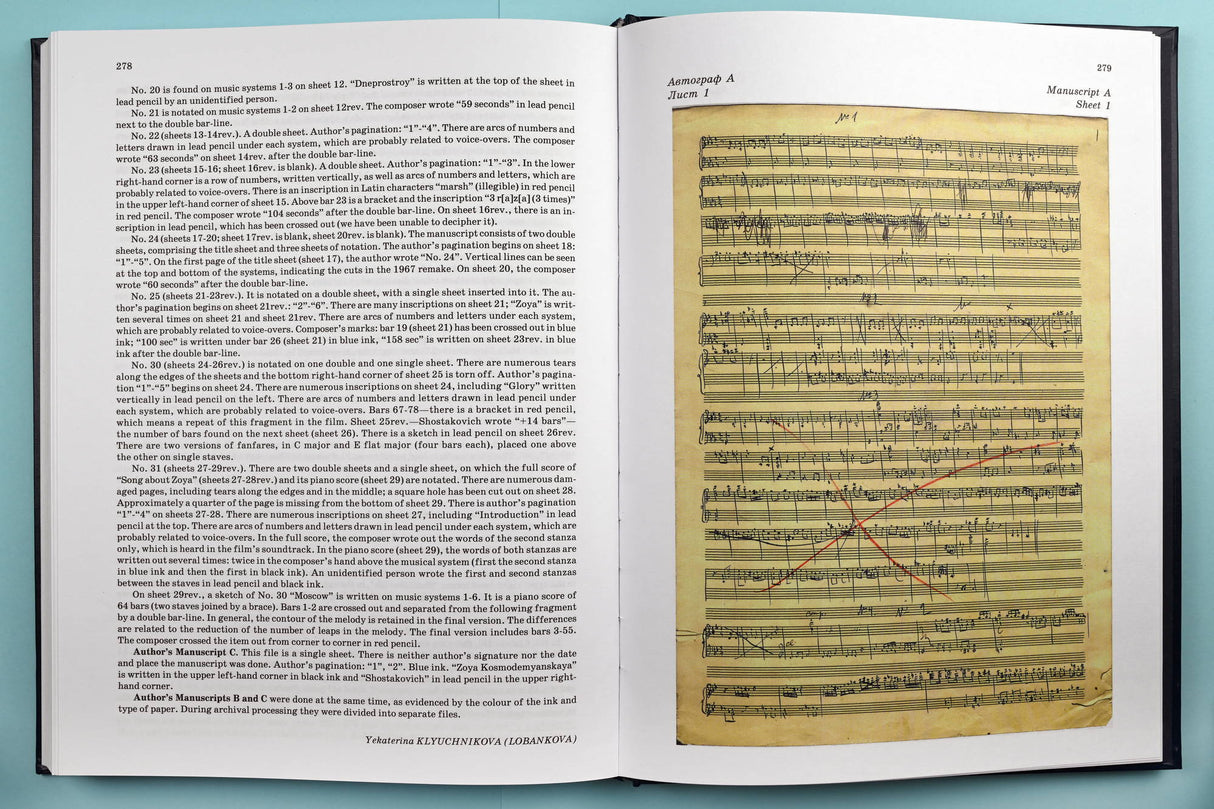 278
No. 20 is found on music systems 1-3 on sheet 12. “Dneprostroy” is written at the top of the sheet in
lead pencil by an unidentified person.
No. 21 is notated on music systems 1-2 on sheet 12rev. The composer wrote “59 seconds” in lead pencil
next to the double bar-line.
No. 22 (sheets 13-14rev.). A double sheet. Author’s pagination: “1”-“4”. There are arcs of numbers and
letters drawn in lead pencil under each system, which are probably related to voice-overs. The composer
wrote “63 seconds” on sheet 14rev. after the double bar-line.
No. 23 (sheets 15-16; sheet 16rev. is blank). A double sheet. Author’s pagination: “1”-“3”. In the lower
right-hand corner is a row of numbers, written vertically, as well as arcs of numbers and letters, which are
probably related to voice-overs. There is an inscription in Latin characters “marsh” (illegible) in red pencil
in the upper left-hand corner of sheet 15. Above bar 23 is a bracket and the inscription “3 r[a]z[a] (3 times)”
in red pencil. The composer wrote “104 seconds” after the double bar-line. On sheet 16rev., there is an in-
scription in lead pencil, which has been crossed out (we have been unable to decipher it).
No. 24 (sheets 17-20; sheet 17rev. is blank, sheet 20rev. is blank). The manuscript consists of two double
sheets, comprising the title sheet and three sheets of notation. The author’s pagination begins on sheet 18:
“1”-“5”. On the first page of the title sheet (sheet 17), the author wrote “No. 24”. Vertical lines can be seen
at the top and bottom of the systems, indicating the cuts in the 1967 remake. On sheet 20, the composer
wrote “60 seconds” after the double bar-line.
No. 25 (sheets 21-23rev.). It is notated on a double sheet, with a single sheet inserted into it. The au-
thor’s pagination begins on sheet 21rev.: “2”-“6”. There are many inscriptions on sheet 21; “Zoya” is writ-
ten several times on sheet 21 and sheet 21rev. There are arcs of numbers and letters under each system,
which are probably related to voice-overs. Composer’s marks: bar 19 (sheet 21) has been crossed out in blue
ink; “100 sec” is written under bar 26 (sheet 21) in blue ink, “158 sec” is written on sheet 23rev. in blue
ink after the double bar-line.
No. 30 (sheets 24-26rev.) is notated on one double and one single sheet. There are numerous tears
along the edges of the sheets and the bottom right-hand corner of sheet 25 is torn off. Author’s pagina-
tion “1”-“5” begins on sheet 24. There are numerous inscriptions on sheet 24, including “Glory” written
vertically in lead pencil on the left. There are arcs of numbers and letters drawn in lead pencil under
each system, which are probably related to voice-overs. Bars 67-78—there is a bracket in red pencil,
which means a repeat of this fragment in the film. Sheet 25rev.—Shostakovich wrote “+14 bars”—
the number of bars found on the next sheet (sheet 26). There is a sketch in lead pencil on sheet 26rev.
There are two versions of fanfares, in C major and E flat major (four bars each), placed one above
the other on single staves.
No. 31 (sheets 27-29rev.). There are two double sheets and a single sheet, on which the full score of
“Song about Zoya” (sheets 27-28rev.) and its piano score (sheet 29) are notated. There are numerous dam-
aged pages, including tears along the edges and in the middle; a square hole has been cut out on sheet 28.
Approximately a quarter of the page is missing from the bottom of sheet 29. There is author’s pagination
“1”-“4” on sheets 27-28. There are numerous inscriptions on sheet 27, including “Introduction” in lead
pencil at the top. There are arcs of numbers and letters drawn in lead pencil under each system, which are
probably related to voice-overs. In the full score, the composer wrote out the words of the second stanza
only, which is heard in the film’s soundtrack. In the piano score (sheet 29), the words of both stanzas are
written out several times: twice in the composer’s hand above the musical system (first the second stanza
in blue ink and then the first in black ink). An unidentified person wrote the first and second stanzas
between the staves in lead pencil and black ink.
On sheet 29rev., a sketch of No. 30 “Moscow” is written on music systems 1-6. It is a piano score of
64 bars (two staves joined by a brace). Bars 1-2 are crossed out and separated from the following fragment
by a double bar-line. In general, the contour of the melody is retained in the final version. The differences
are related to the reduction of the number of leaps in the melody. The final version includes bars 3-55.
The composer crossed the item out from corner to corner in red pencil.
Author’s Manuscript C. This file is a single sheet. There is neither author’s signature nor the date
and place the manuscript was done. Author’s pagination: “1”, “2”. Blue ink. “Zoya Kosmodemyanskaya”
is written in the upper left-hand corner in black ink and “Shostakovich” in lead pencil in the upper right-
hand corner.
Author’s Manuscripts B and C were done at the same time, as evidenced by the colour of the ink and
type of paper. During archival processing they were divided into separate files.
Yekaterina KLYUCHNIKOVA (LOBANKOVA)
279
Автограф А
Лист 1
Manuscript A
Sheet 1
№ 1
1
№ 2
№ 3